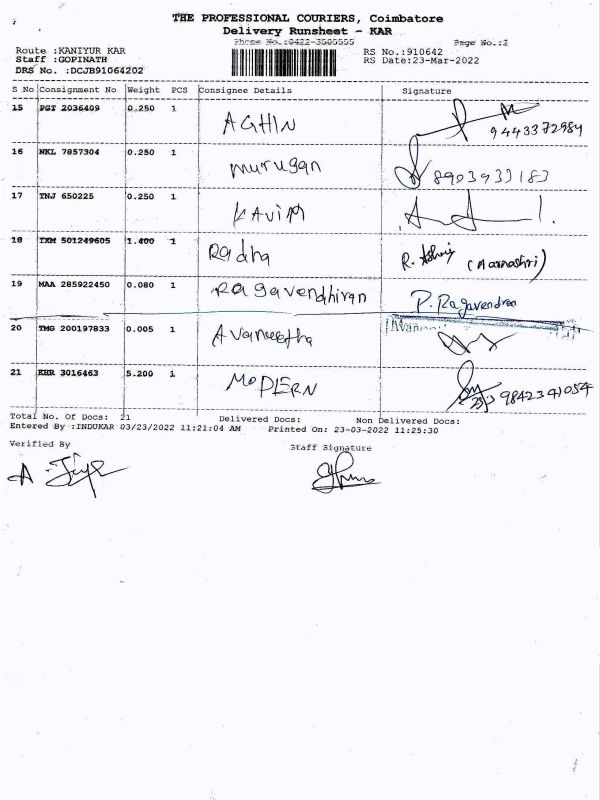 THE PROFESSIONAL COURIERS, Coimbatore
Delivery Runsheet - KAR
Phone No.:0422-3505555 Page No.:2
Route :KANIYUR KAR RS No.:910642
Staff :GOPINATH RS Date:23-Mar-2022
DRS No. :DCJB91064202
S No Consignment No Weight PCS Consignee Details Signature
15 PGT 2036409 0.250 1 AGHIN 9443372984
16 NKL 7857304 0.250 1 murugan
17 TNJ 650225 0.250 1 KAVIM
18 TXM 501249605 1.400 1 Radha R.
19 MAA 285922450 0.080 1 Ragavendhiran P. Ragavendran
20 TMG 200197833 0.005 1 Avaneetha
21 KHR 3016463 5.200 1 MODERN 9842341054
Total No. Of Docs: 21 Delivered Docs: Non Delivered Docs:
Entered By :INDUKAR 03/23/2022 11:21:04 AM Printed On: 23-03-2022 11:25:30
Verified By Staff Signature